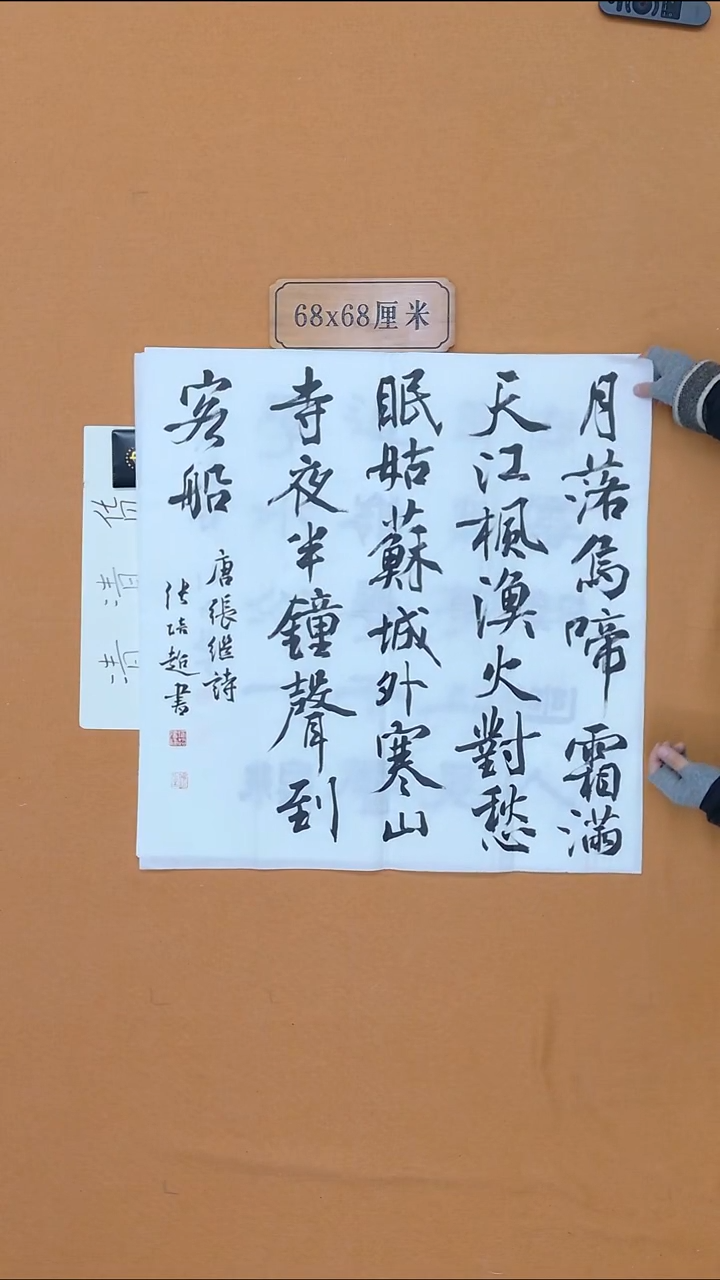 68x68厘米
月落烏啼霜滿
天江楓漁火對愁
眠姑蘇城外寒山
寺夜半鐘聲到
客船
唐張继詩
培超書